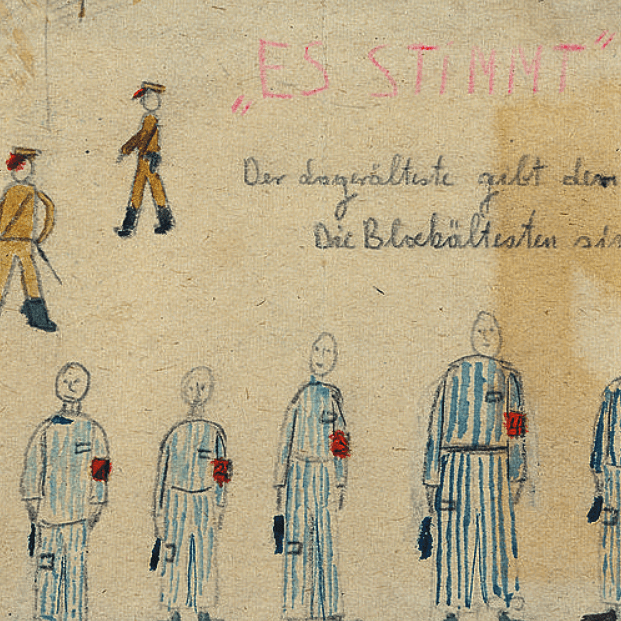 „ES STIMMT“
Der Lagerälteste gibt dem
Die Blockältesten
2
3
4